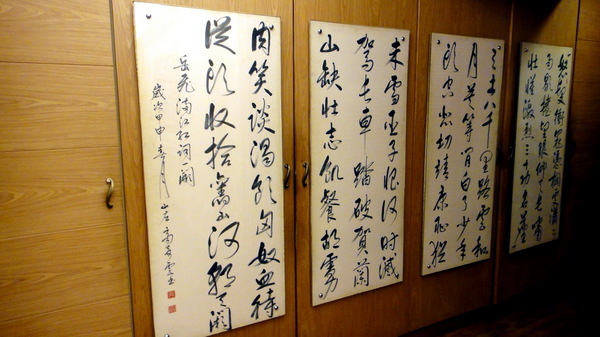 怒髮衝冠憑欄處瀟瀟
雨歇擡望眼仰天長嘯
壯懷激烈三十功名塵
与土八千里路雲和
月莫等閒白了少年
頭空悲切靖康恥猶
未雪臣子恨何時滅
駕長車踏破賀蘭
山缺壯志飢餐胡虜
肉笑談渴飲匈奴血待
從頭收拾舊山河朝天闕
岳飛滿江紅詞一闋
歲次甲申春月 山左高雲書